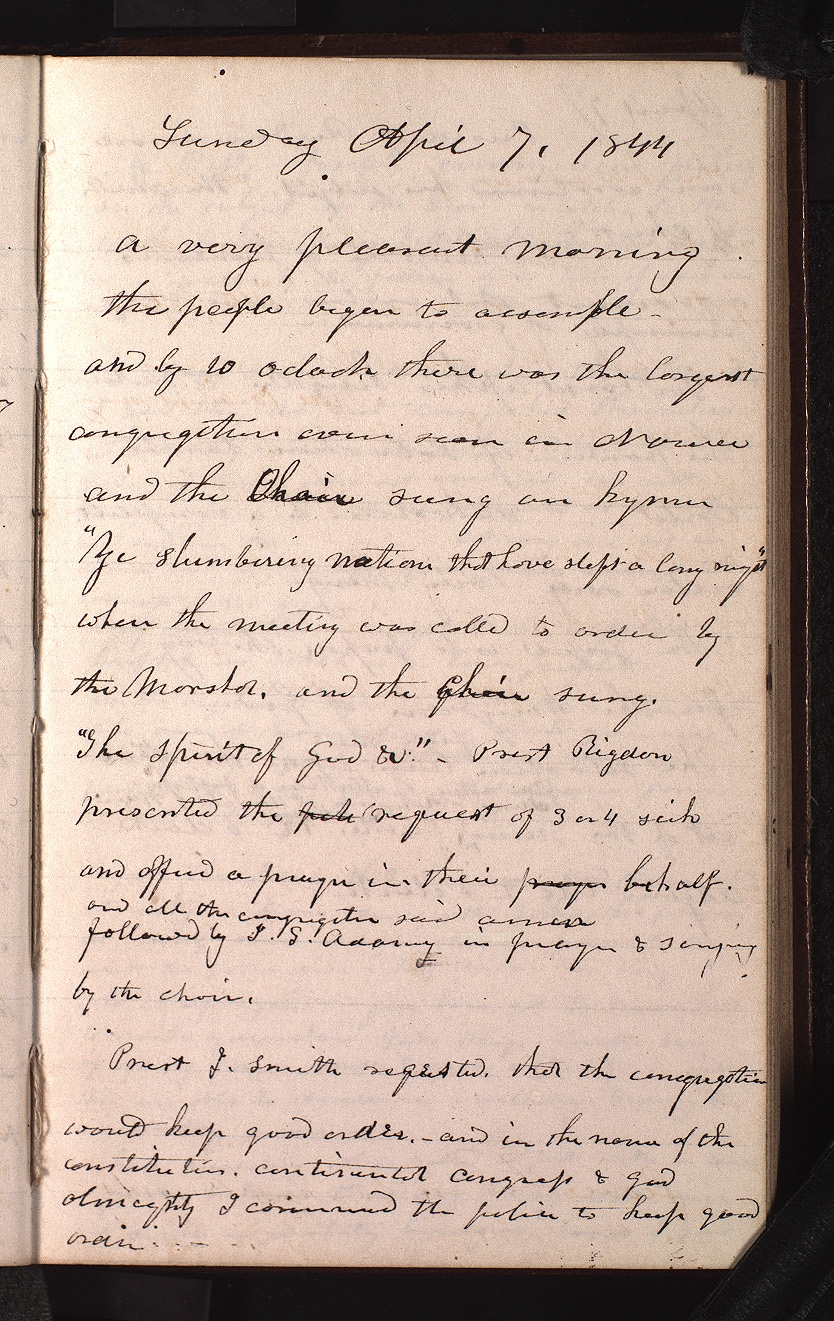 Sunday April 7, 1844
a very pleasant morning.
the people began to assemble -
and by 10 oclock there was the largest
congregation ever seen in Nauvoo
and the Choir sung an hymn
"Ye slumbering nations that have slept a long night"
when the meeting was called to order by
the Marshal. and the Choir sung.
"The spirit of God &c" - Prest Rigdon
presented the request of 3 or 4 sick
and offered a prayer in their prayer behalf.
and all the congregation said amen
followed by J. S. Adams in prayer & singing
by the choir.
Prest J. Smith requested. that the congregation
would keep good order. - and in the name of the
constitution. continental congress & God
almighty I command the police to keep good
order. -